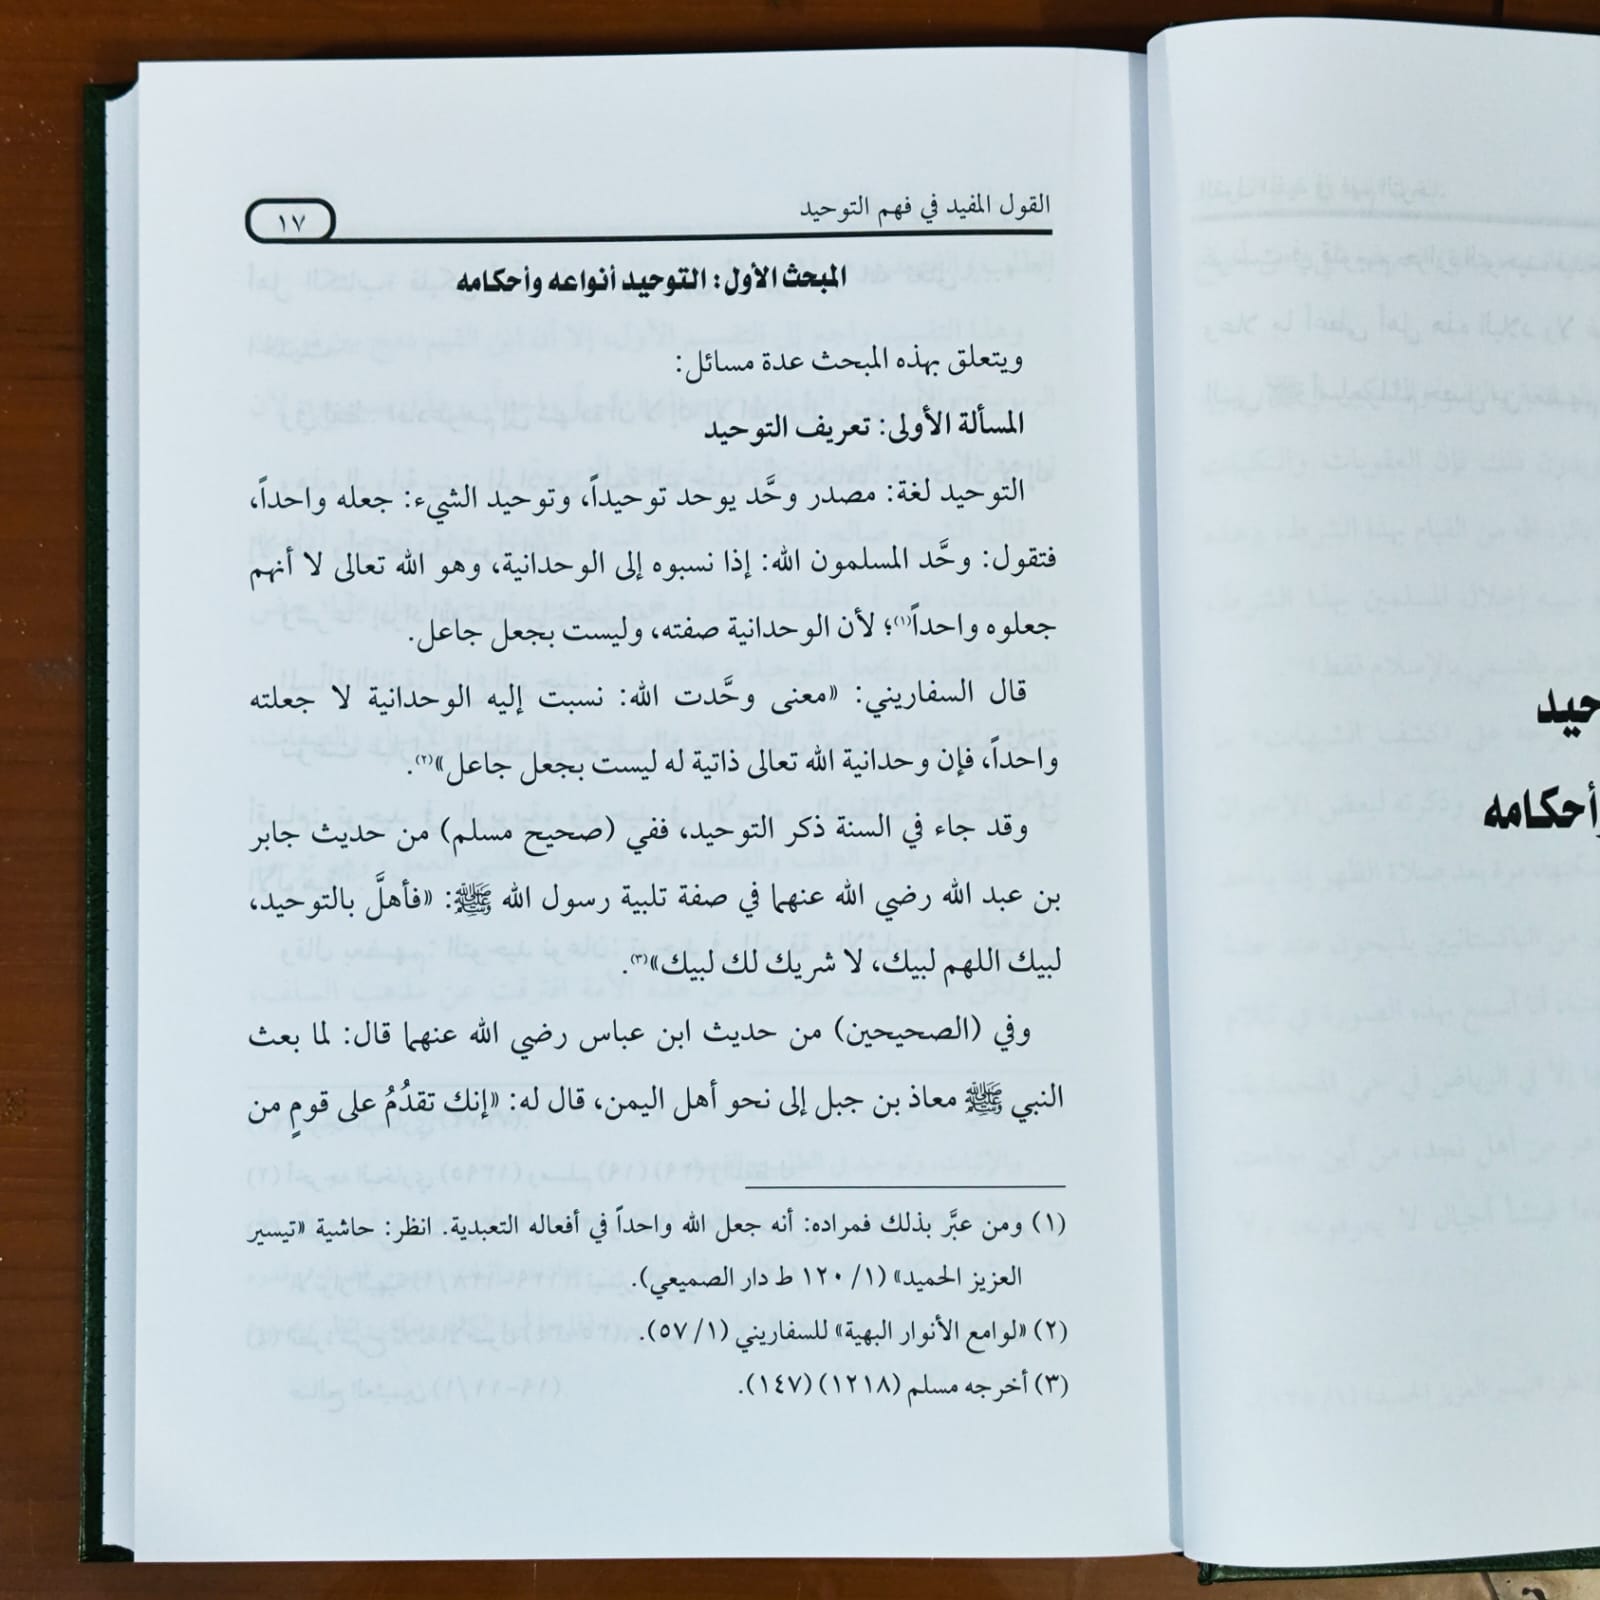 القول المفيد في فهم التوحيد
١٧
المبحث الأول: التوحيد أنواعه وأحكامه
ويتعلق بهذه المبحث عدة مسائل:
المسألة الأولى: تعريف التوحيد
التوحيد لغة: مصدر وحَّد يوحد توحيداً، وتوحيد الشيء: جعله واحداً،
فتقول: وحَّد المسلمون الله: إذا نسبوه إلى الوحدانية، وهو الله تعالى لا أنهم
جعلوه واحداً(١)؛ لأن الوحدانية صفته، وليست بجعل جاعل.
قال السفاريني: «معنى وحَّدت الله: نسبت إليه الوحدانية لا جعلته
واحداً، فإن وحدانية الله تعالى ذاتية له ليست بجعل جاعل»(٢).
وقد جاء في السنة ذكر التوحيد، ففي (صحيح مسلم) من حديث جابر
بن عبد الله رضي الله عنهما في صفة تلبية رسول الله ﷺ: «فأهلَّ بالتوحيد،
لبيك اللهم لبيك، لا شريك لك لبيك»(٣).
وفي (الصحيحين) من حديث ابن عباس رضي الله عنهما قال: لما بعث
النبي ﷺ معاذ بن جبل إلى نحو أهل اليمن، قال له: «إنك تقدُمُ على قومٍ من
(١) ومن عبَّر بذلك فمراده: أنه جعل الله واحداً في أفعاله التعبدية. انظر: حاشية «تيسير
العزيز الحميد» (١/ ١٢٠ ط دار الصميعي).
(٢) «لوامع الأنوار البهية» للسفاريني (١/ ٥٧).
(٣) أخرجه مسلم (١٢١٨) (١٤٧).
حيد
أحكامه